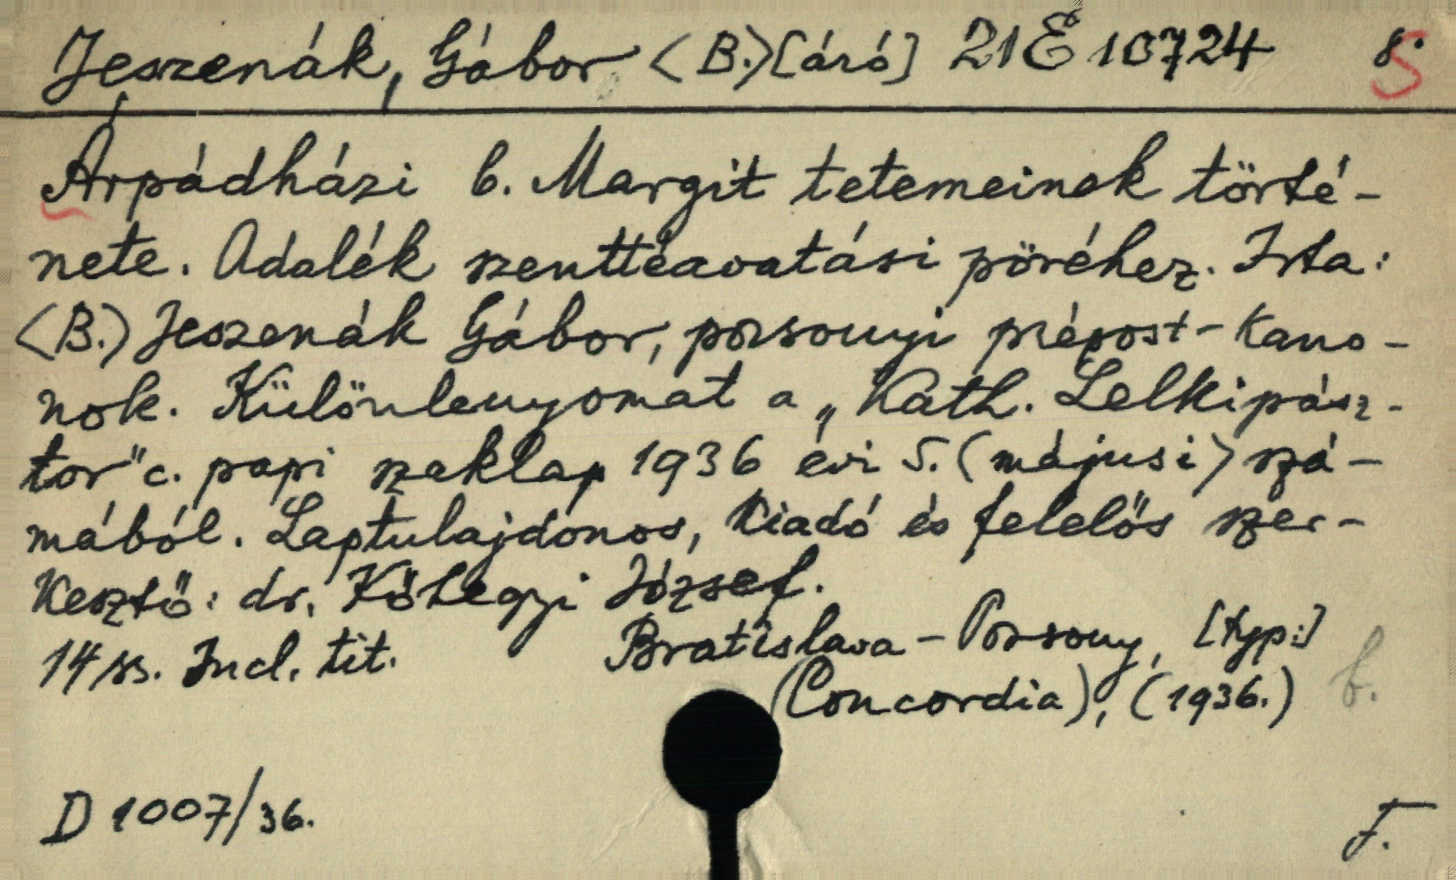 Jeszenák, Gábor <B.>[áró] 21 É 10724 8° S
Árpádházi b. Margit tetemeinek törté-
nete. Adalék szenttéavatási pöréhez. Irta:
<B.> Jeszenák Gábor, pozsonyi prépost-kano-
nok. Különlenyomat a „Kath. Lelkipász-
tor" c. papi szaklap 1936 évi 5. (májusi) szá-
mából. Laptulajdonos, kiadó és felelős szer-
kesztő: dr. Kőhegyi József.
14 ss. Incl. tit. Bratislava-Pozsony, [typ:]
(Concordia), (1936.) f.
D 1007/36. F.